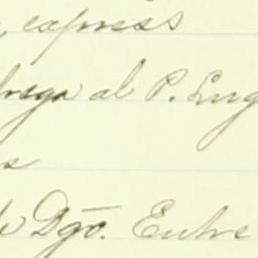 , express
brega al P. Lug
s
de Dgo. Entre